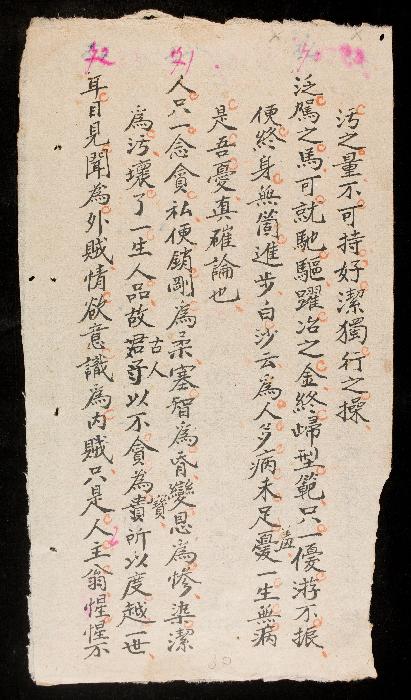 汚之量不可持好潔獨行之操
泛駕之馬可就馳驅躍冶之金終歸型範只一優游不振
便終身無箇進步白沙云為人多病未足羞憂一生無病
是吾憂真確論也
人只一念貪私便銷剛為柔塞智為昏變恩為慘染潔
為汚壞了一生人品故君子古人以不貪為寶貴所以度越一世
耳目見聞為外賊情欲意識為內賊只是人主翁惺惺不